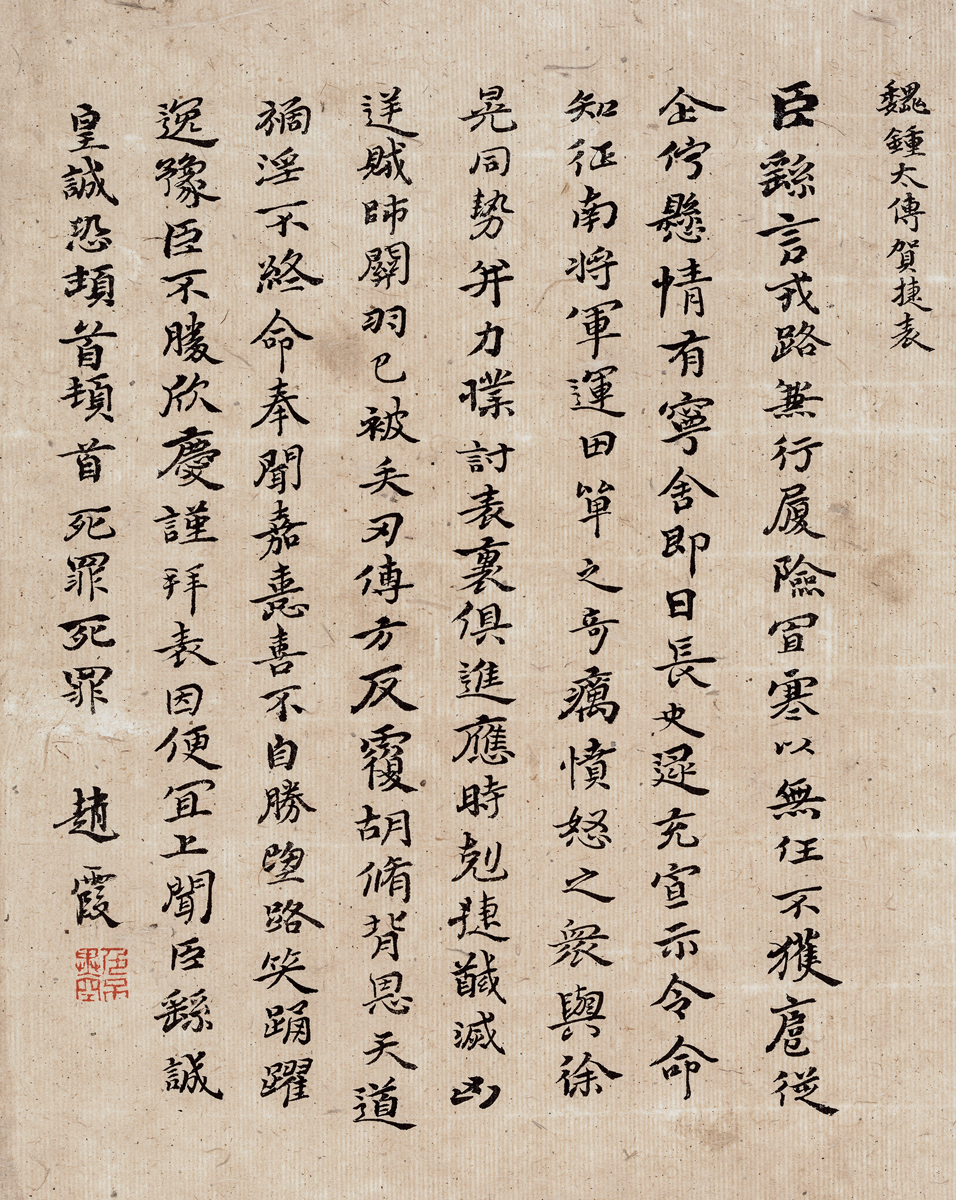 魏鍾太傅賀捷表
臣繇言戎路兼行履險冒寒以無任不獲扈從
企佇懸情有寧舍即日長史逯充宣示令命
知征南將軍運田單之奇癘憤怒之衆與徐
晃同勢并力㬥討表裏俱進應時剋捷馘滅凶
逆賊帥關羽已被矢刃傅方反覆胡脩背恩天道
禍淫不終命奉聞嘉憙喜不自勝望路笑踊躍
逸豫臣不勝欣慶謹拜表因便宜上聞臣繇誠
皇誠恐頓首頓首死罪死罪
趙霞